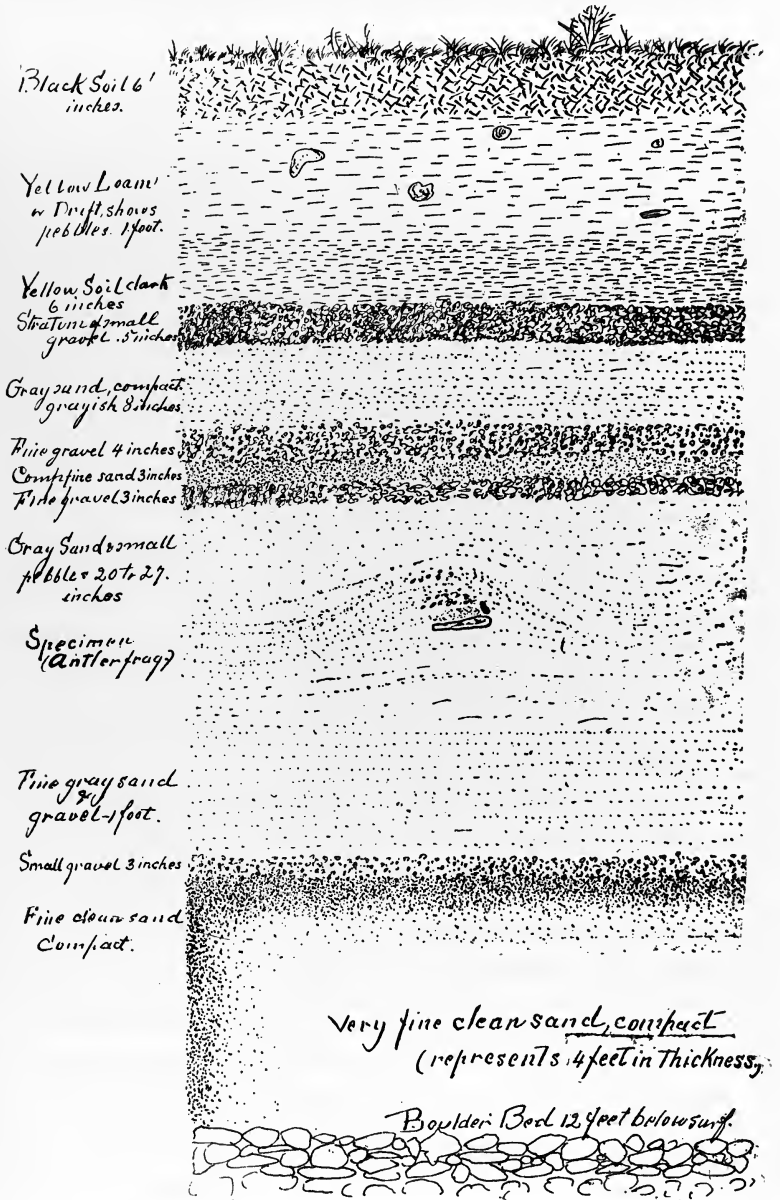 Black Soil 6'
inches.
Yellow Loam
or Drift, shows
pebbles. 1 foot.
Yellow Soil dark
6 inches
Stratum of small
gravel. 5 inches
Gray sand, compact
grayish 8 inches
Fine gravel 4 inches
Comp fine sand 3 inches
Fine gravel 3 inches
Gray Sand & small
pebbles 20 to 27.
inches
Specimen
(Antler frag)
Fine gray sand
&
gravel - 1 foot.
Small gravel 3 inches
Fine clean sand
Compact.
Very fine clean sand, compact
(represents 4 feet in thickness,
Boulder Bed 12 feet below surf.